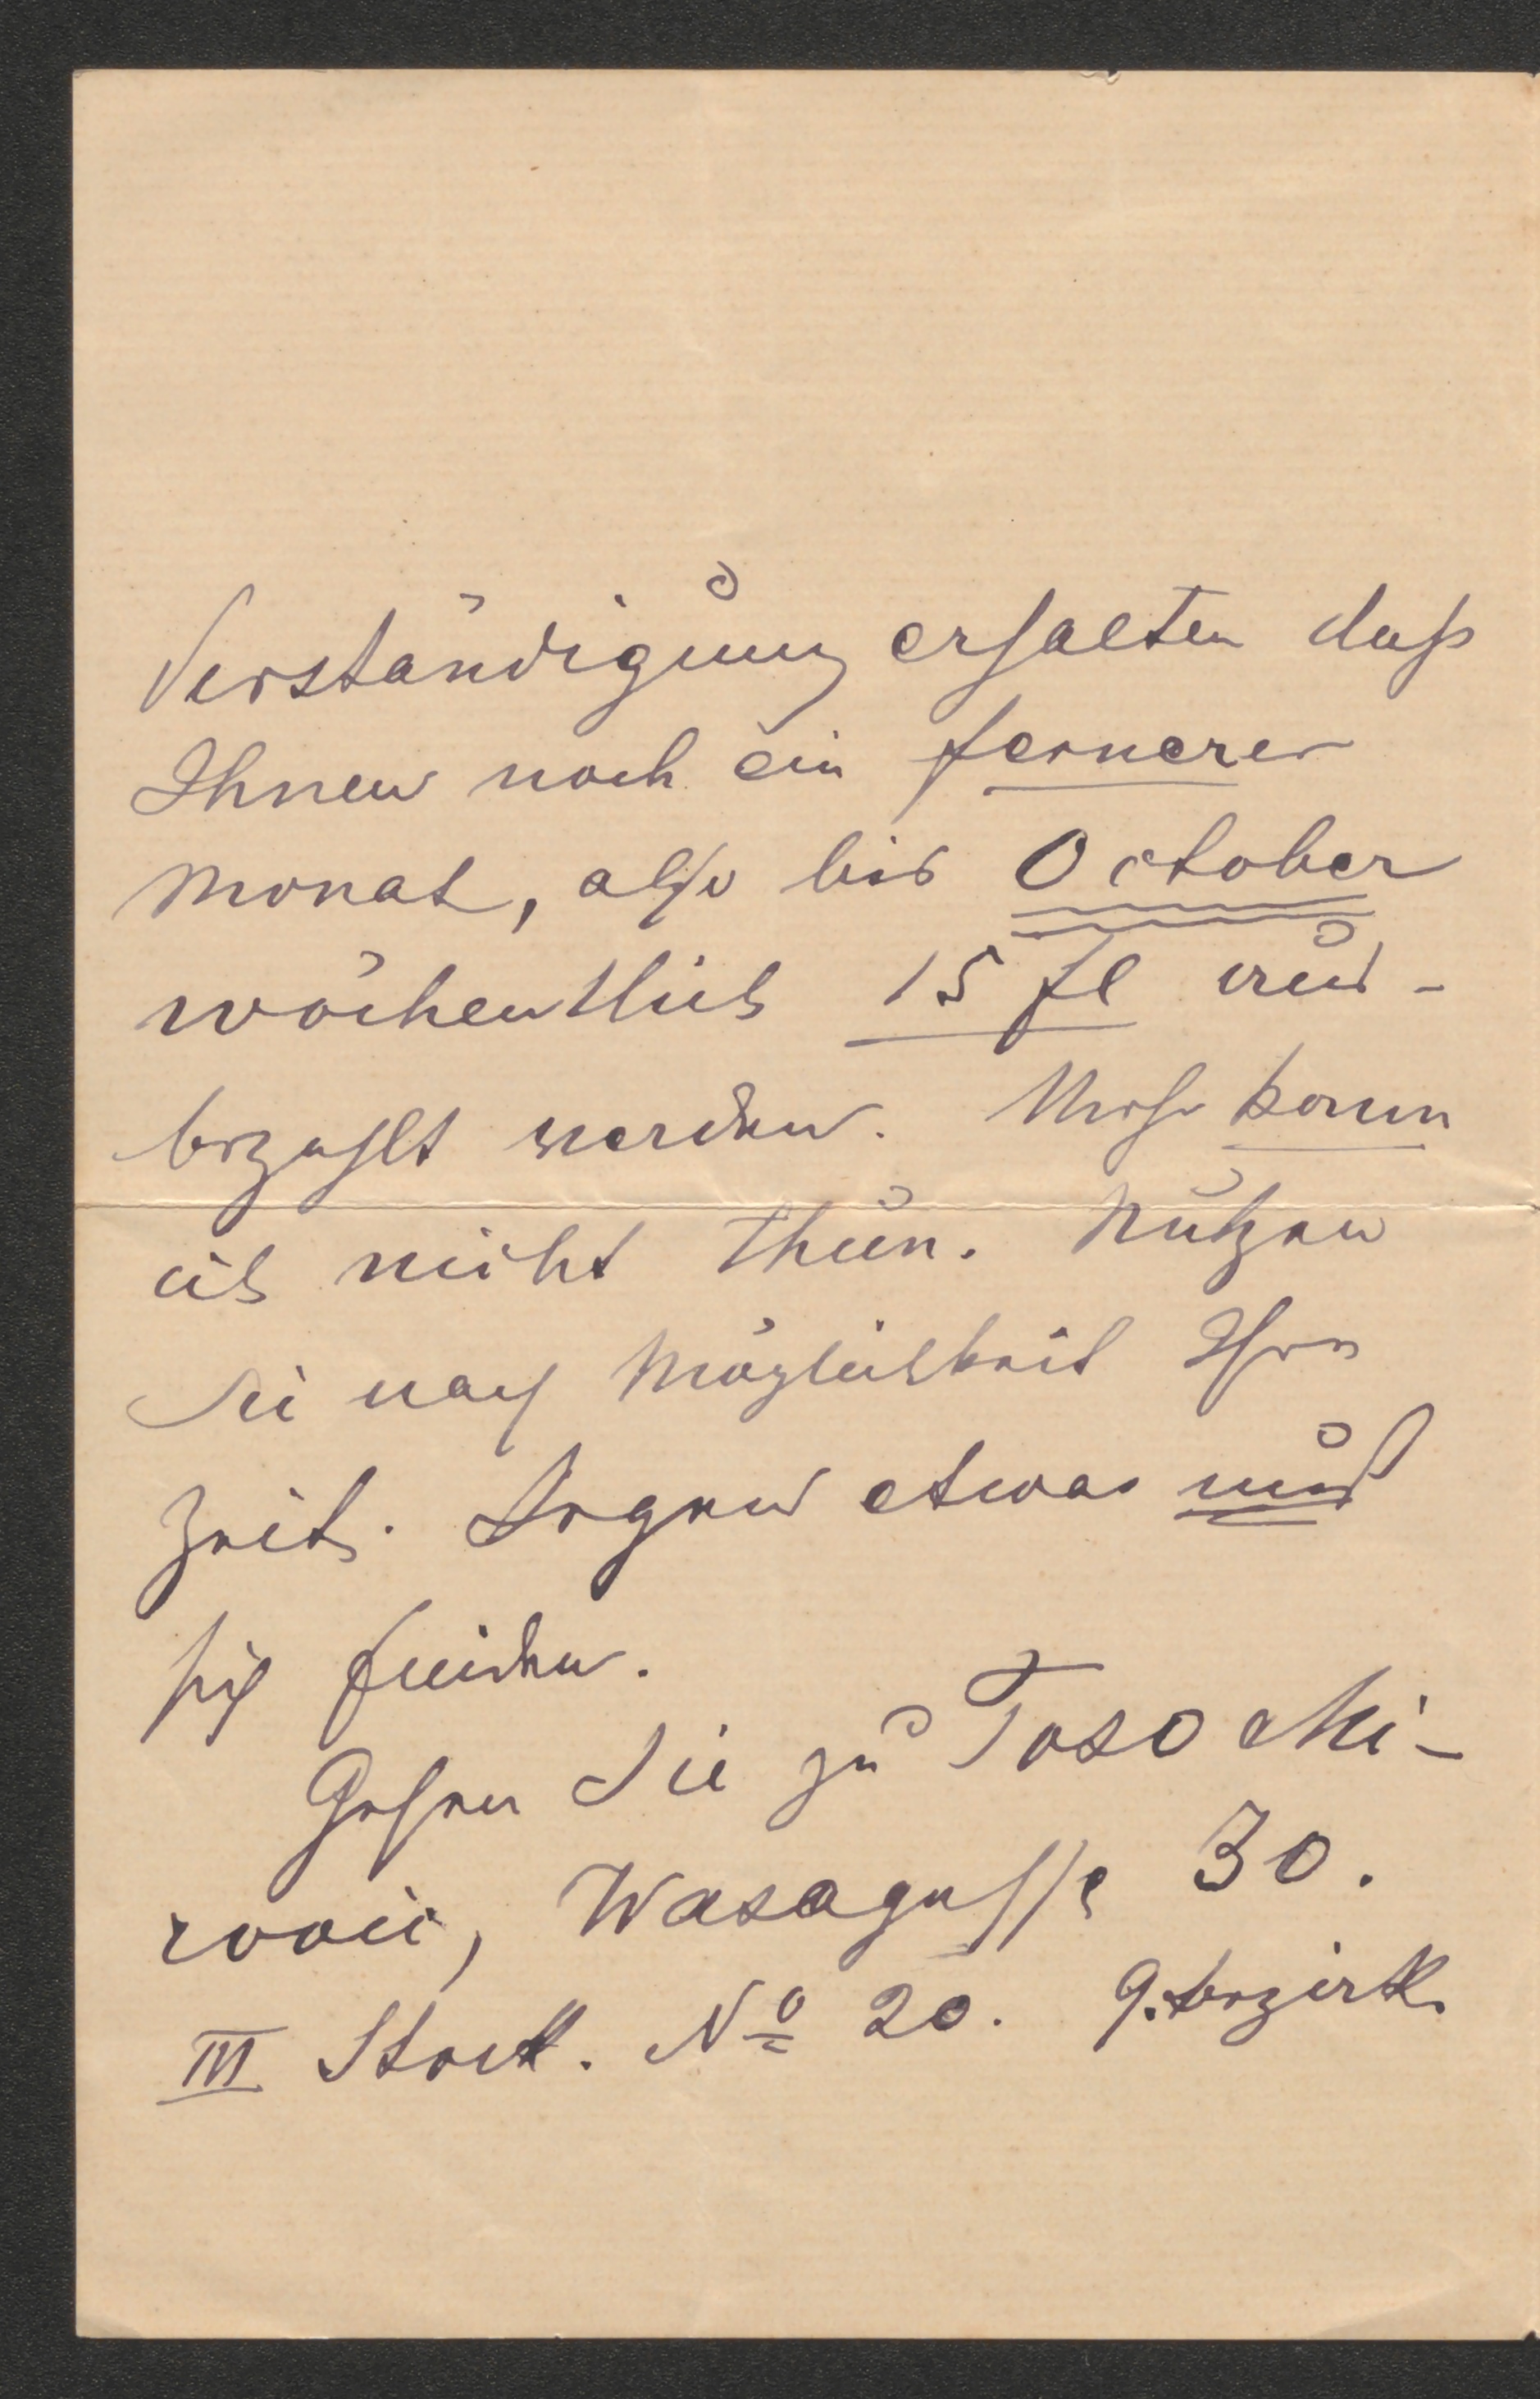 Verständigung erhalten daß
Ihnen noch ein fernerer
Monat, also bis October
wöchentlich 15 fl aus-
bezahlt werden. Mehr kann
ich nicht thun. Nützen
Sie nach Möglichkeit Ihre
Zeit. Irgend etwas muß
sich finden.
Gehen Sie zu Toso Mi-
rovic, Wasagasse 30.
III Stock. No 20. 9. Bezirk.